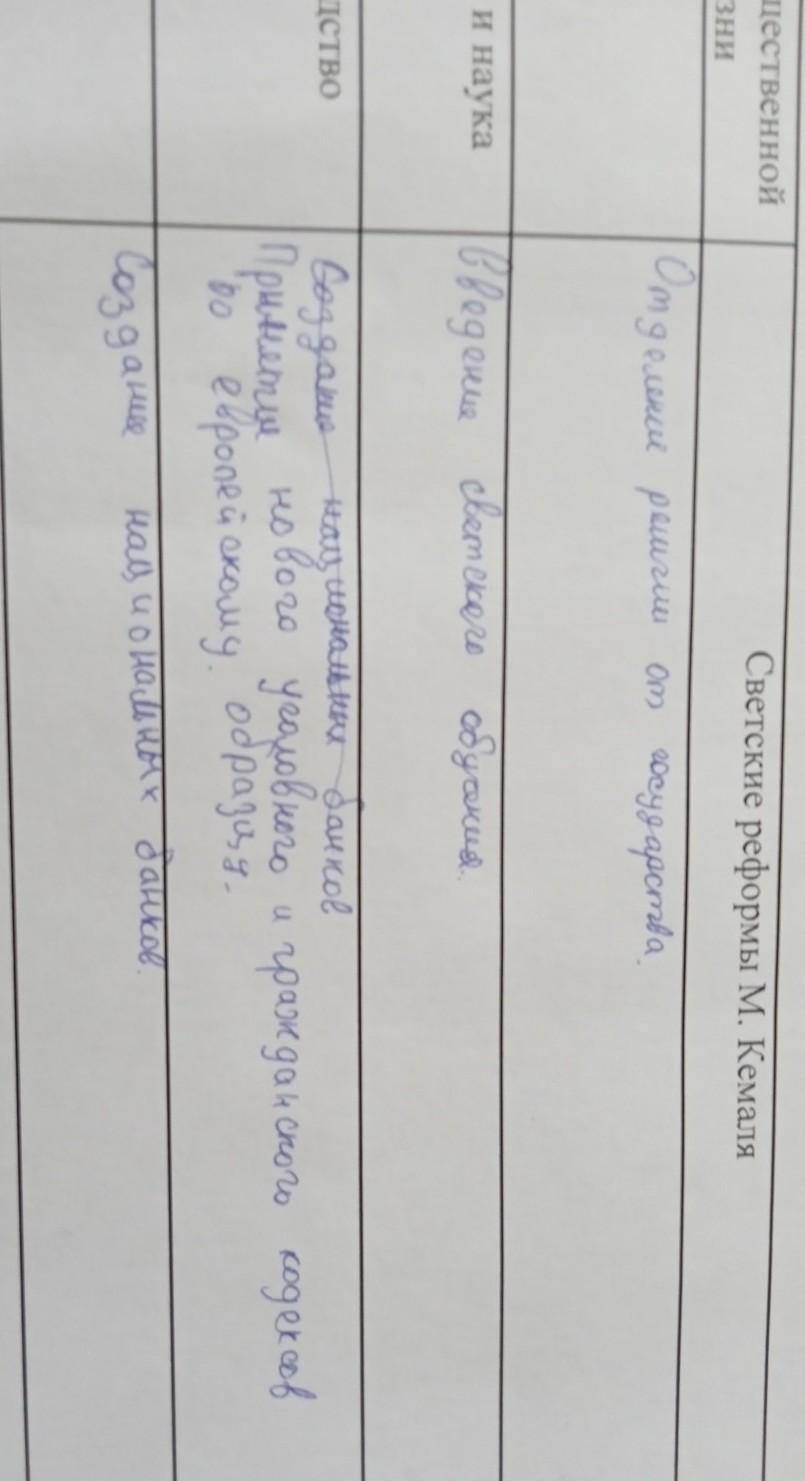 щественной
зни
Светские реформы М. Кемаля
Отделение религии от государства.
и наука
Введение светского обучения.
дство
Создание национальных банков
Принятие нового уголовного и гражданского кодексов
по европейскому образцу.
Создание национальных банков.